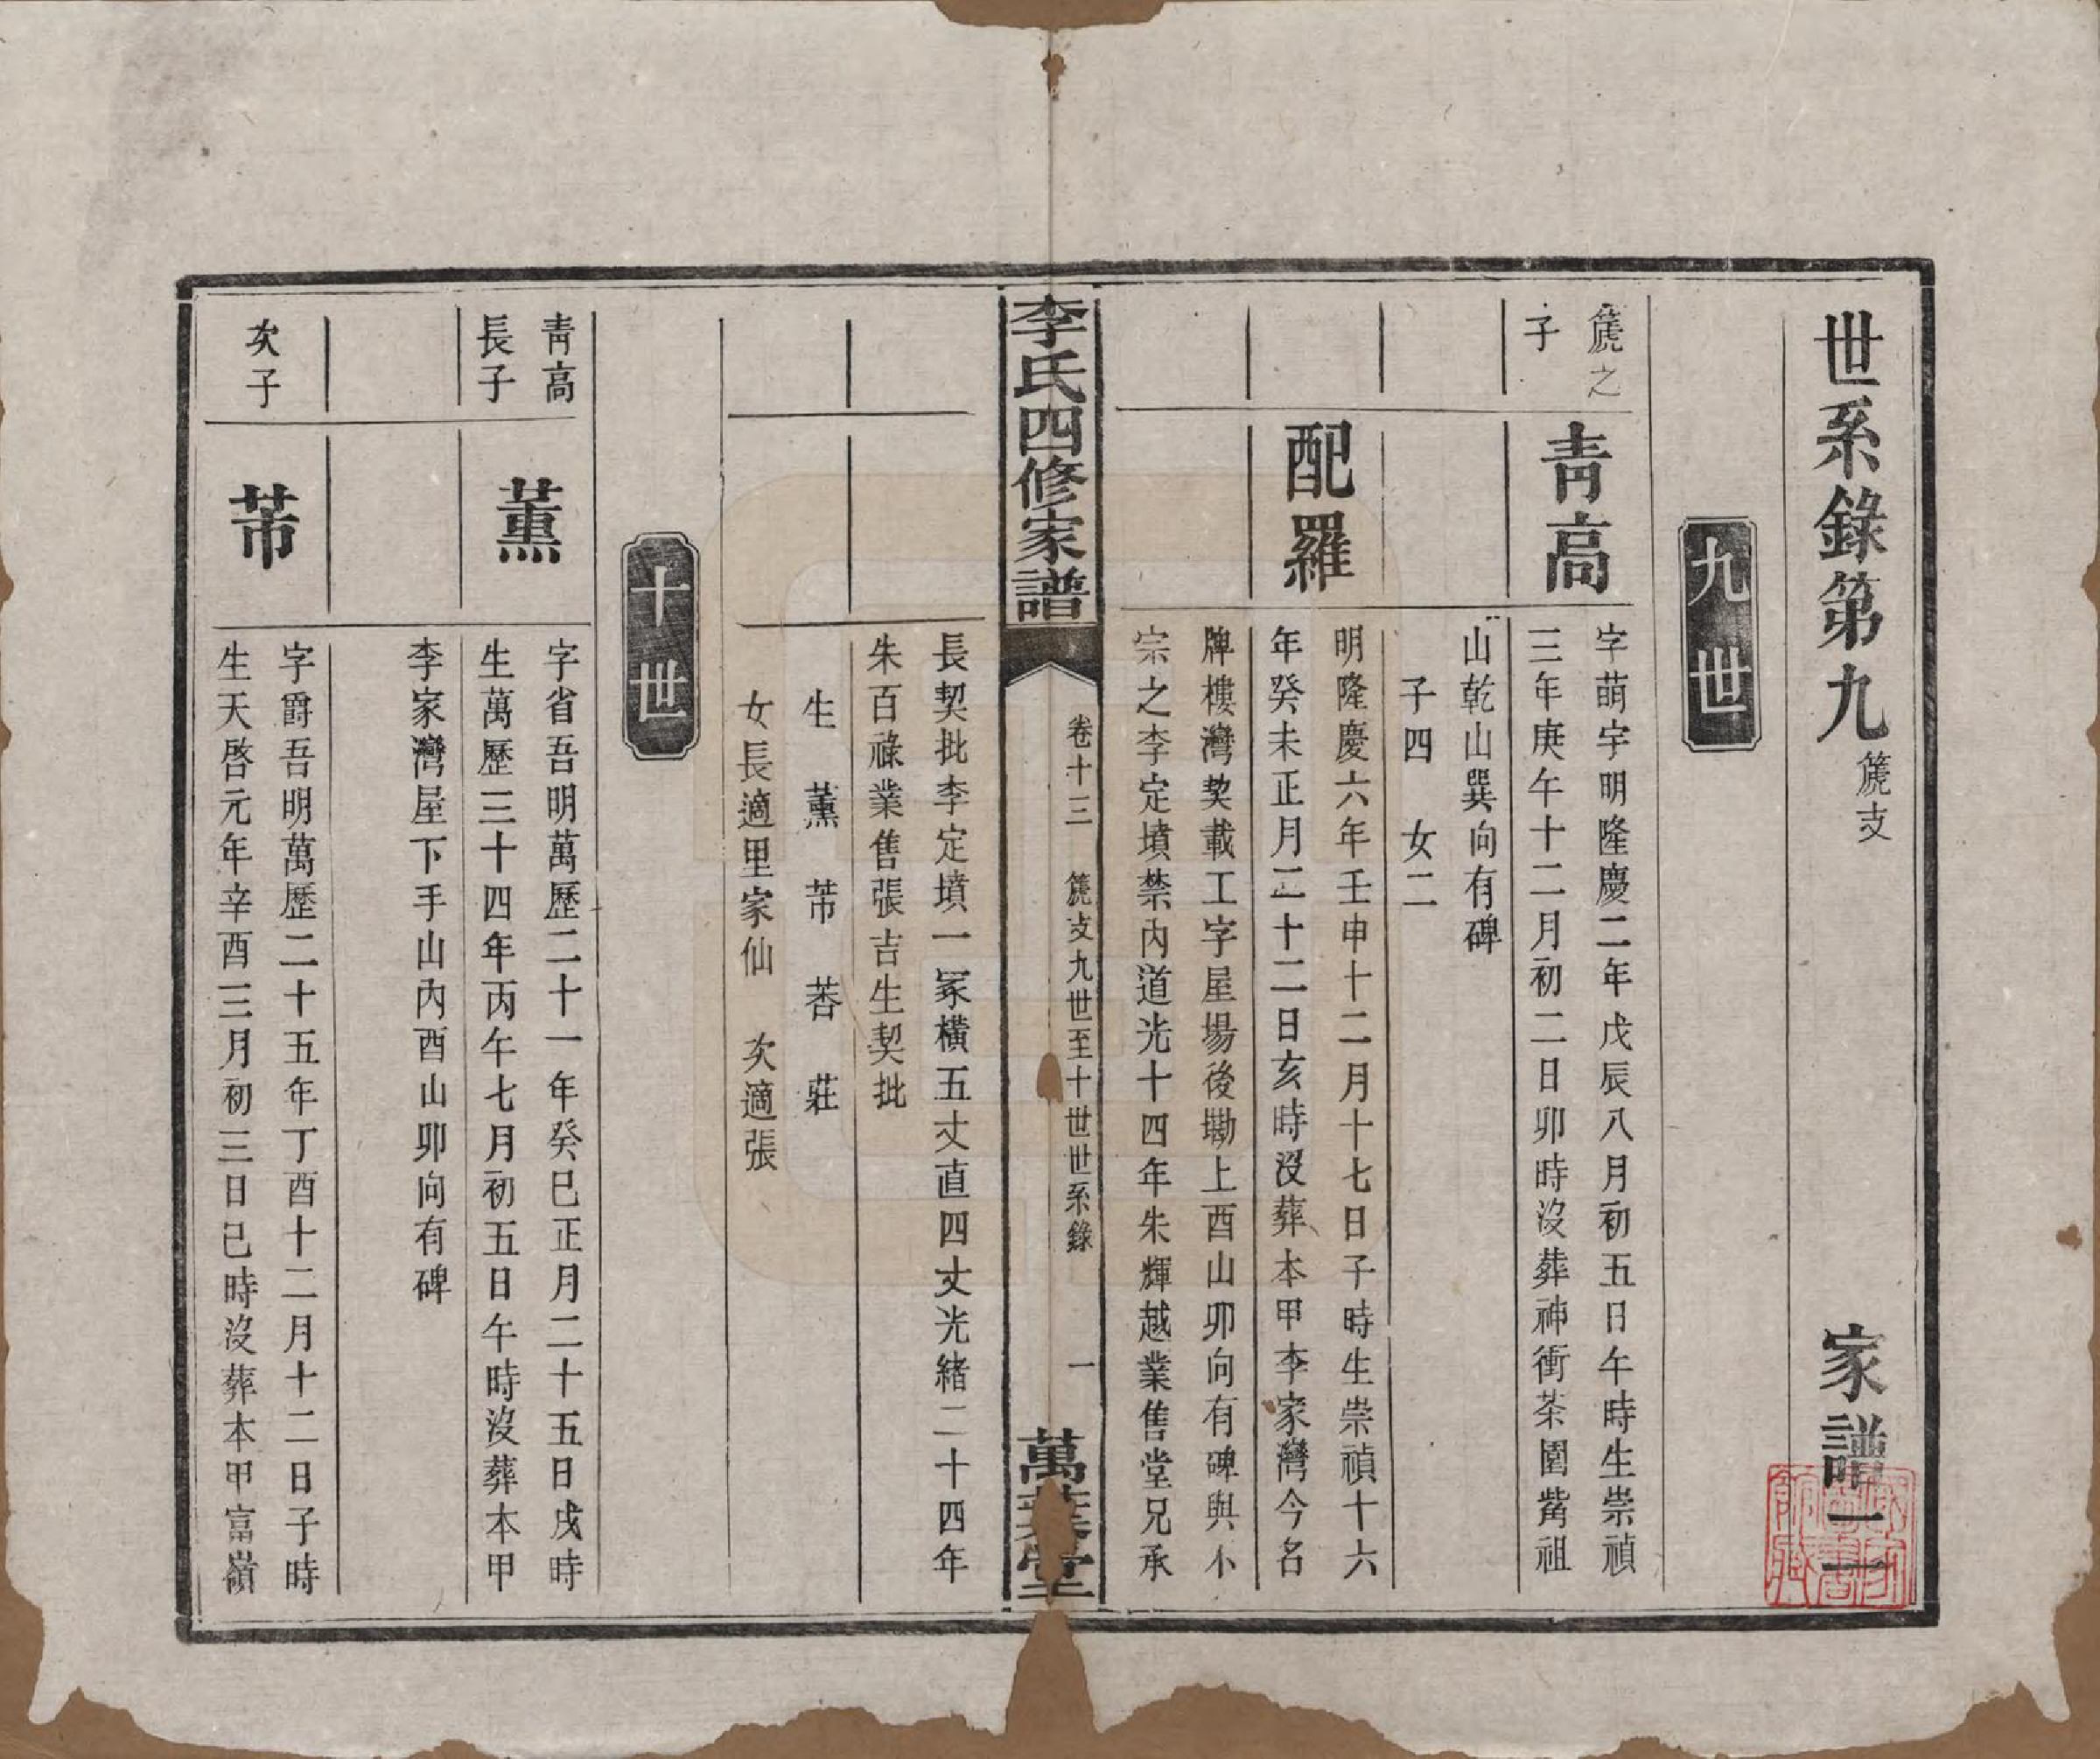 世系錄第九 篪支 家譜二
九世
篪之
子
青高
字萌宇明隆慶二年戊辰八月初五日午時生崇禎
三年庚午十二月初二日卯時沒葬神衝茶園觜祖
山乾山巽向有碑
子四 女二
配羅
明隆慶六年壬申十二月十七日子時生崇禎十六
年癸未正月二十二日亥時沒葬本甲李家灣今名
牌樓灣契載工字屋場後墈上酉山卯向有碑與小
宗之李定墳禁內道光十四年朱輝越業售堂兄承
李氏四修家譜
卷十三 篪支九世至十世世系錄 一
萬葉堂
長契批李定墳一冢橫五丈直四丈光緒二十四年
朱百祿業售張吉生契批
生 薰 芾 莕 莊
女長適里家仙 次適張
十世
青高
長子
薰
字省吾明萬歷二十一年癸巳正月二十五日戌時
生萬歷三十四年丙午七月初五日午時沒葬本甲
李家灣屋下手山內酉山卯向有碑
次子
芾
字爵吾明萬歷二十五年丁酉十二月十二日子時
生天啓元年辛酉三月初三日巳時沒葬本甲富嶺